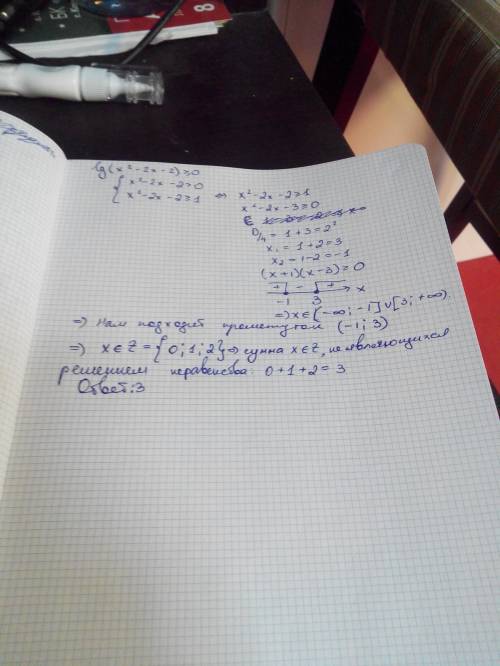 lg(x²-2x-2)≥0
{ x²-2x-2>0
x²-2x-2≥1 ⇔ x²-2x-2≥1
x²-2x-3≥0
D/4 = 1+3=2²
x₁=1+2=3
x₂=1-2=-1
(x+1)(x-3)≥0
+ - + x
-1 3
⇒) x∈(-∞;-1]∪[3;+∞).
⇒) Нам подходит промежуток (-1;3)
⇒) x∈Z = {0;1;2} ⇒ сумма x∈Z, не являющихся
решением неравенства: 0+1+2=3
Ответ:3
8